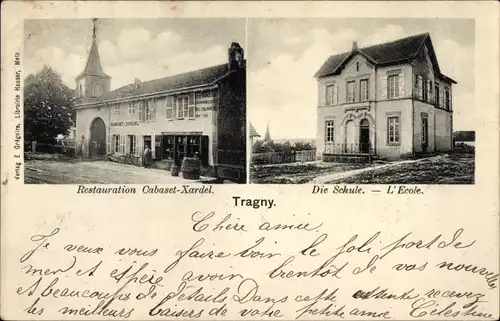 Verlag E. Grégoire, Librairie Hauser, Metz.
CABASET XARDEL
Restauration Cabaset-Xardel.
Die Schule. — L'Ecole.
Tragny.
Chère amie.
Je veux vous faire voir le joli port de
mer et espère avoir bientôt de vos nouvelles
et beaucoup de détails Dans cette attente recevez
les meilleurs baisers de votre petite amie Célestine